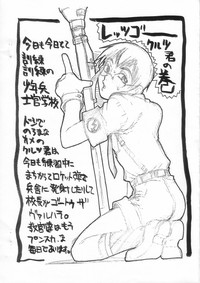 レッツゴー
クルツ君の巻
今日も今日とて
訓練
訓練の
少年兵
士官学校
ドジで
のろまな
カメの
クルツ君は
今日も練習中に
まちがってロケット弾を
兵舎に発射したりして
校長がゴートゥザ
ヴァルハラ。
教官達はもう
プンスカな
毎日であります。